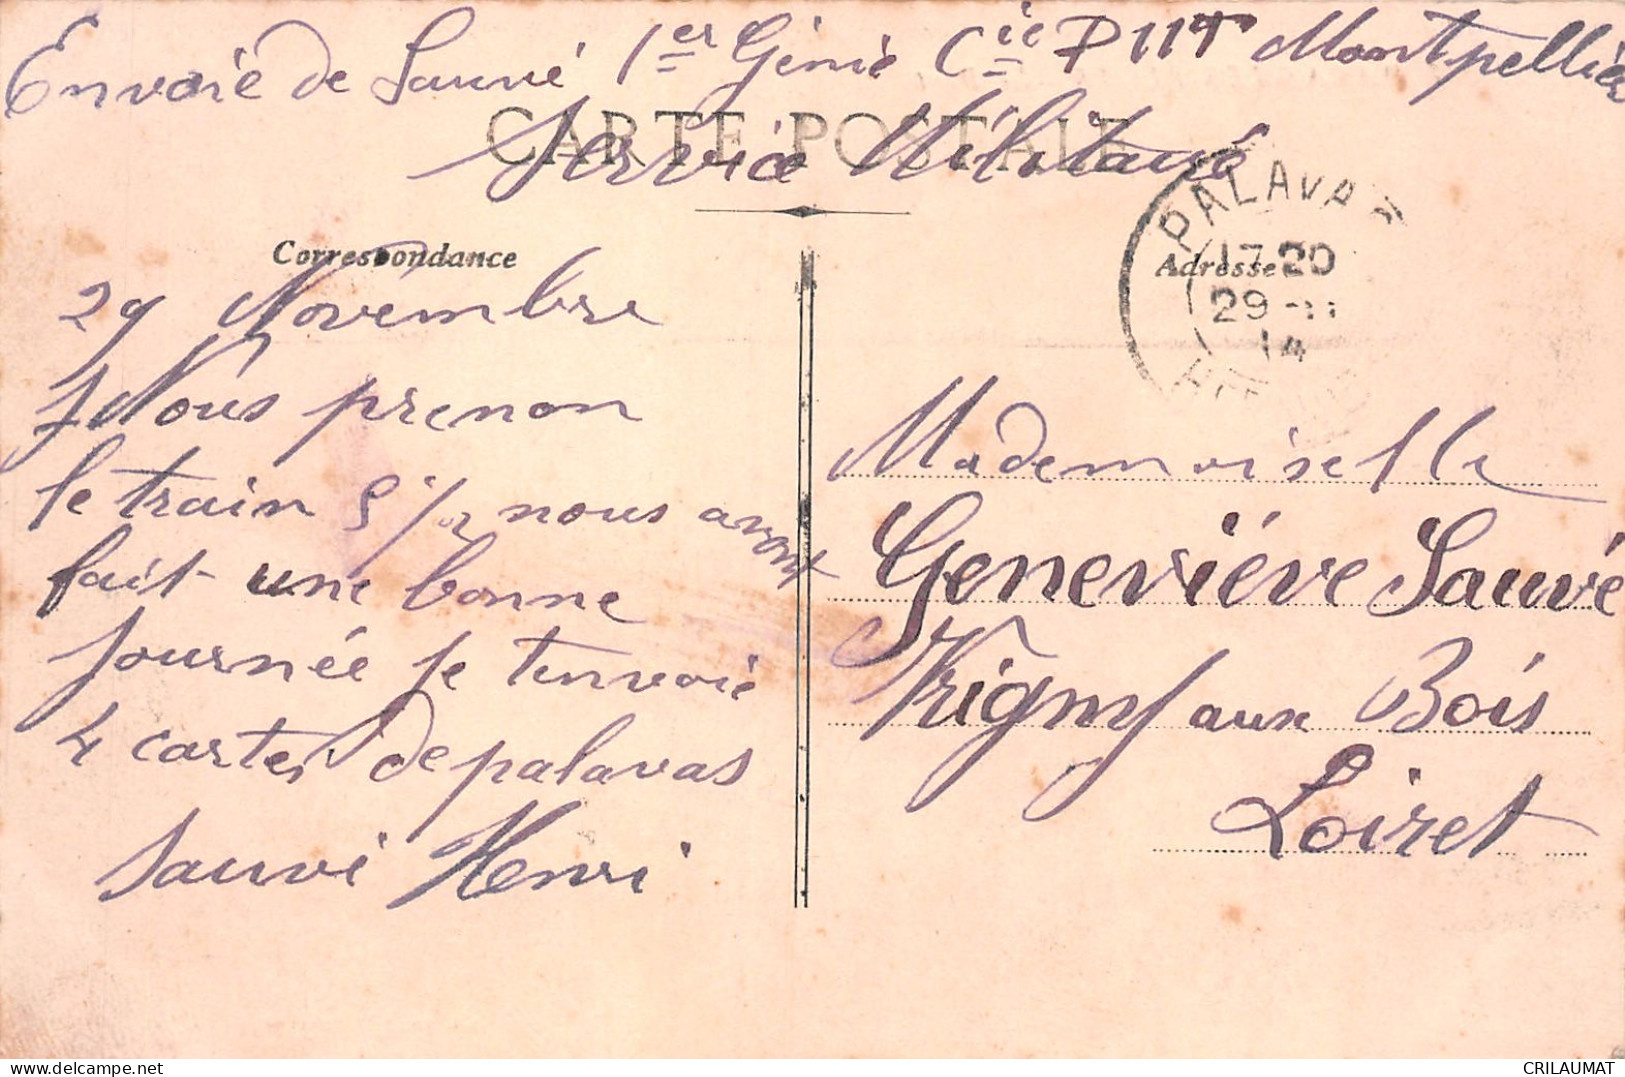 Envoie de Sauvé 1er Génie Cie P 11T Montpellier
CARTE POSTALE
Service Militaire
PALAVAS
17 20
29 -11
14
Correspondance
Adresse
29 Novembre
Nous prenon
le train 5 nous avont
fait une bonne
Journée je tenvoie
4 cartes de palavas
Sauvé Henri
Mademoiselle
Geneviéve Sauvé
Vrigny aux Bois
Loiret
delcampe.net
CRILAUMAT